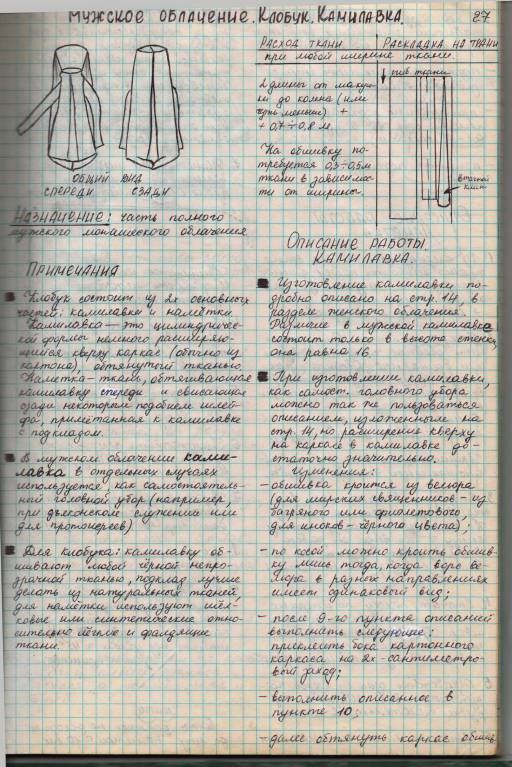 Мужское облачение. Клобук. Камилавка.
27
Общий вид
спереди сзади
Назначение: часть полного
мужского монашеского облачения
Примечания
Клобук состоит из 2х основных
частей: камилавки и намётки.
Камилавка – это цилиндричес-
кой формы немного расширяю-
щийся кверху каркас (обычно из
картона), обтянутый тканью.
Намётка – ткань, обтягивающая
камилавку спереди и свисающая
сзади некоторым подобием шлей-
фа, приметанная к камилавке
с подкладом.
В мужском облачении ками-
лавка в отдельных случаях
используется как самостоятель-
ный головной убор (например,
при дьяконском служении или
для протоиереев)
Для клобука: камилавку об-
шивают любой чёрной непро-
зрачной тканью, подклад лучше
делать из натуральных тканей,
для намётки используют шёл-
ковые или синтетические отно-
сительно лёгкие и фалдящие
ткани.
Расход ткани
Раскладка на ткани
при любой ширине ткани.
2 длины от макуш-
ки до колена (или
чуть меньше) +
+ 0,7÷0,8 м.
На обшивку по-
требуется 0,3÷0,5м
ткани в зависимос-
ти от ширины.
сгиб ткани
втачной
клин
Описание работы
Камилавка.
Изготовление камилавки по-
дробно описано на стр. 14, в
разделе женского облачения.
Различие в мужской камилавке
состоит только в высоте стенки,
она равна 16.
При изготовлении камилавки,
как самост. головного убора
можно так же пользоваться
описанием, изложенным на
стр. 14, но расширение кверху
на каркасе в камилавке до-
статочно значительно.
Изменения:
– обшивка кроится из велюра
(для мирских священников – из
багряного или фиолетового,
для иноков – чёрного цвета);
– по косой можно кроить обшив-
ку лишь тогда, когда ворс ве-
люра в разных направлениях
имеет одинаковый вид;
– после 9-го пункта описаний
выполнить следующее:
приклеить бока картонного
каркаса на 2х-сантиметро-
вый заход;
– выполнить описанное в
пункте 10;
– далее обтянуть каркас обшив